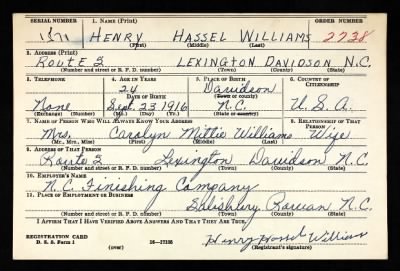 SERIAL NUMBER 1. NAME (Print) ORDER NUMBER
HENRY HASSEL WILLIAMS 2738
(First) (Middle) (Last)
2. ADDRESS (Print)
ROUTE 2 LEXINGTON DAVIDSON N.C.
(Number and street or R. F. D. number) (Town) (County) (State)
3. TELEPHONE 4. AGE IN YEARS 5. PLACE OF BIRTH 6. COUNTRY OF CITIZENSHIP
24 Davidson
DATE OF BIRTH (Town or county)
None Sept. 23 1916 N.C. U.S.A.
(Exchange) (Number) (Mo.) (Day) (Yr.) (State or country)
7. NAME OF PERSON WHO WILL ALWAYS KNOW YOUR ADDRESS 8. RELATIONSHIP OF THAT PERSON
Mrs. Carolyn Mittie Williams Wife
(Mr., Mrs., Miss) (First) (Middle) (Last)
9. ADDRESS OF THAT PERSON
Route 2 Lexington Davidson N.C.
(Number and street or R. F. D. number) (Town) (County) (State)
10. EMPLOYER'S NAME
N.C. Finishing Company
11. PLACE OF EMPLOYMENT OR BUSINESS
Salisbury, Rowan N.C.
(Number and street or R. F. D. number) (Town) (County) (State)
I AFFIRM THAT I HAVE VERIFIED ABOVE ANSWERS AND THAT THEY ARE TRUE.
REGISTRATION CARD
D. S. S. Form 1 (over) 16—17105 Henry Hassel Williams
(Registrant's signature)